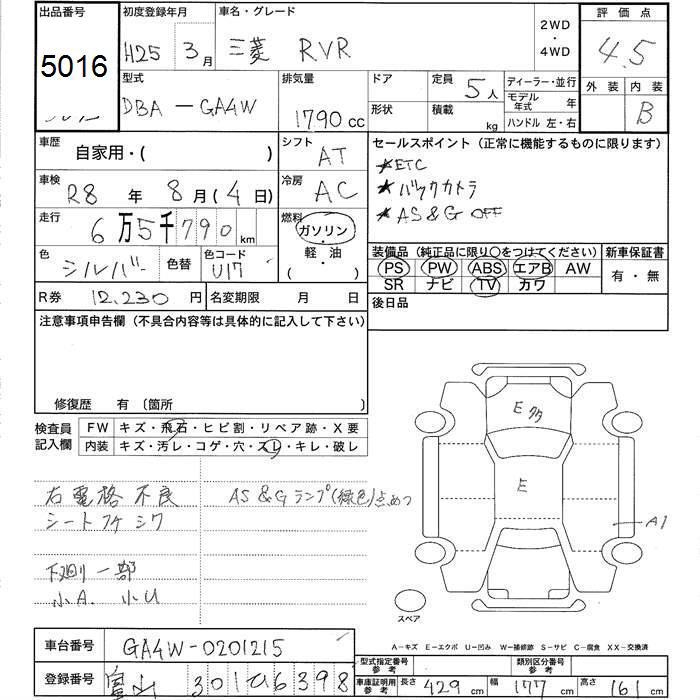 出品番号 初度登録年月 車名・グレード 2WD・4WD 評価点
5016 H25 3月 三菱 RVR 4.5
型式 排気量 ドア 定員 5人 ディーラー・並行 外装 内装
DBA-GA4W 1790cc 形状 積載 kg モデル年式 年 B
ハンドル 左・右
車歴 自家用・( ) シフト AT セールスポイント (正常に機能するものに限ります)
★ETC
車検 R8年 8月(4日) 冷房 AC ★バックカメラ
★AS&G OFF
走行 6万5千790km 燃料 ガソリン・軽油 ( )
色 シルバー 色替 色コード U17 装備品 (純正品に限り〇をつけてください) 新車保証書
PS PW ABS エアB AW 有・無
SR ナビ TV カワ
R券 12,230円 名変期限 月 日 後日品
注意事項申告欄 (不具合内容等は具体的に記入して下さい)
修復歴 有 〔箇所 〕
検査員記入欄 FW キズ・飛石・ヒビ割・リペア跡・X要
内装 キズ・汚レ・コゲ・穴・スレ・キレ・破レ
右電格不良 AS&Gランプ(緑色)点めつ
シート シワ
下廻り一部
小A. 小U
E
E
A1
スペア
A-キズ E-エクボ U-凹み W-補修跡 S-サビ C-腐食 XX-交換済
車台番号 GA4W-0201215
型式指定番号 参考 類別区分番号 参考
登録番号 富山 301 6398
車庫証明用 参考 長さ 429cm 幅 177cm 高さ 161cm